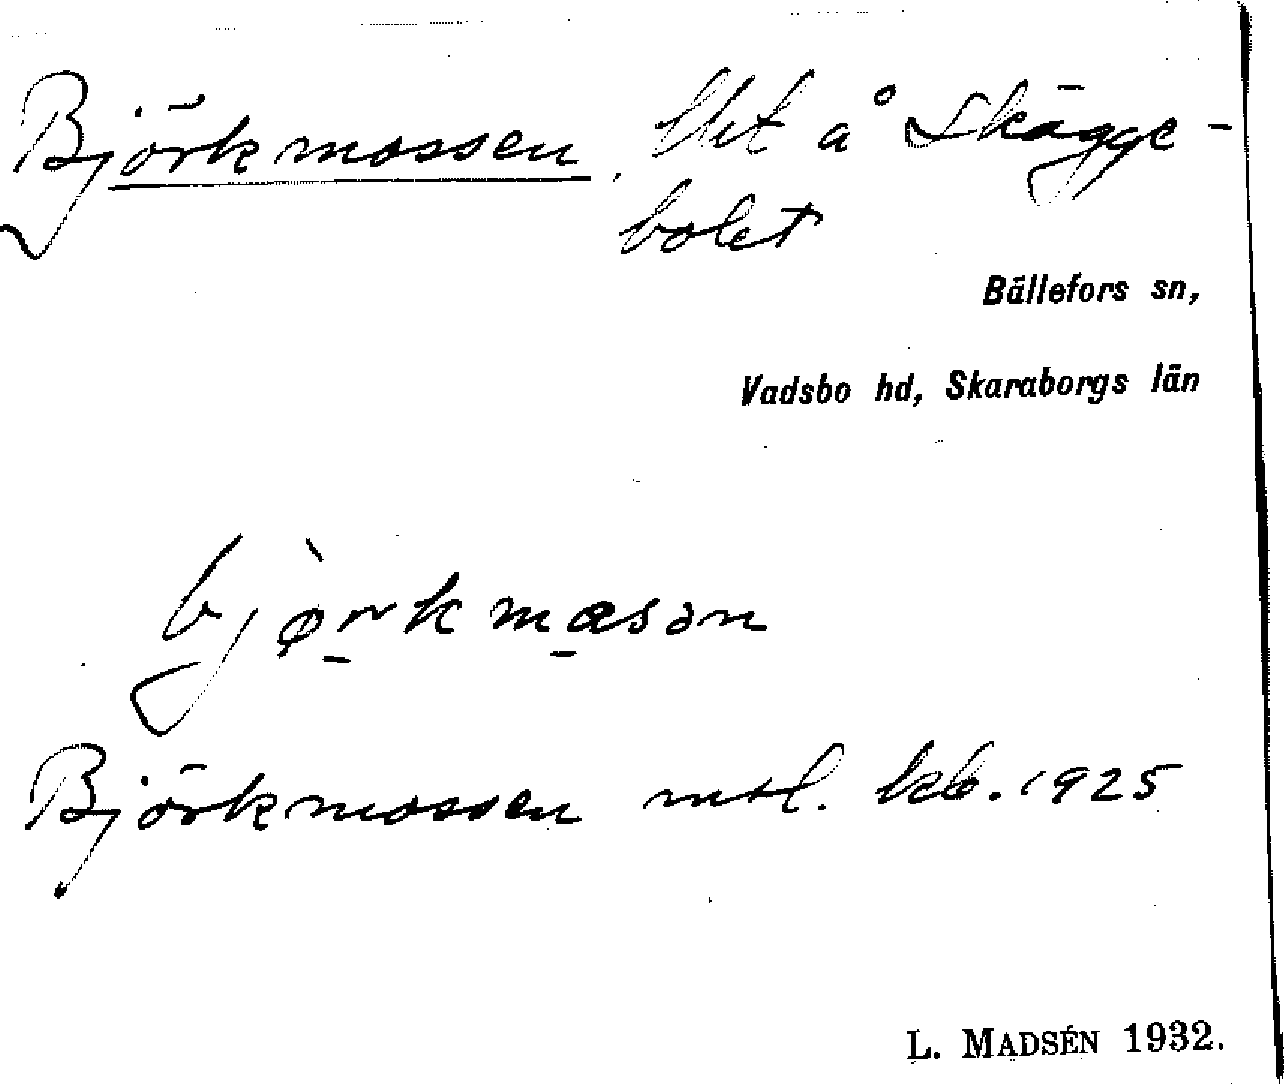 Björkmossen, lht å Skägge-
bolet
Bällefors sn,
Vadsbo hd, Skaraborgs län
bjørkmæsən
Björkmossen mtl. kb. 1925
L. MADSÉN 1932.